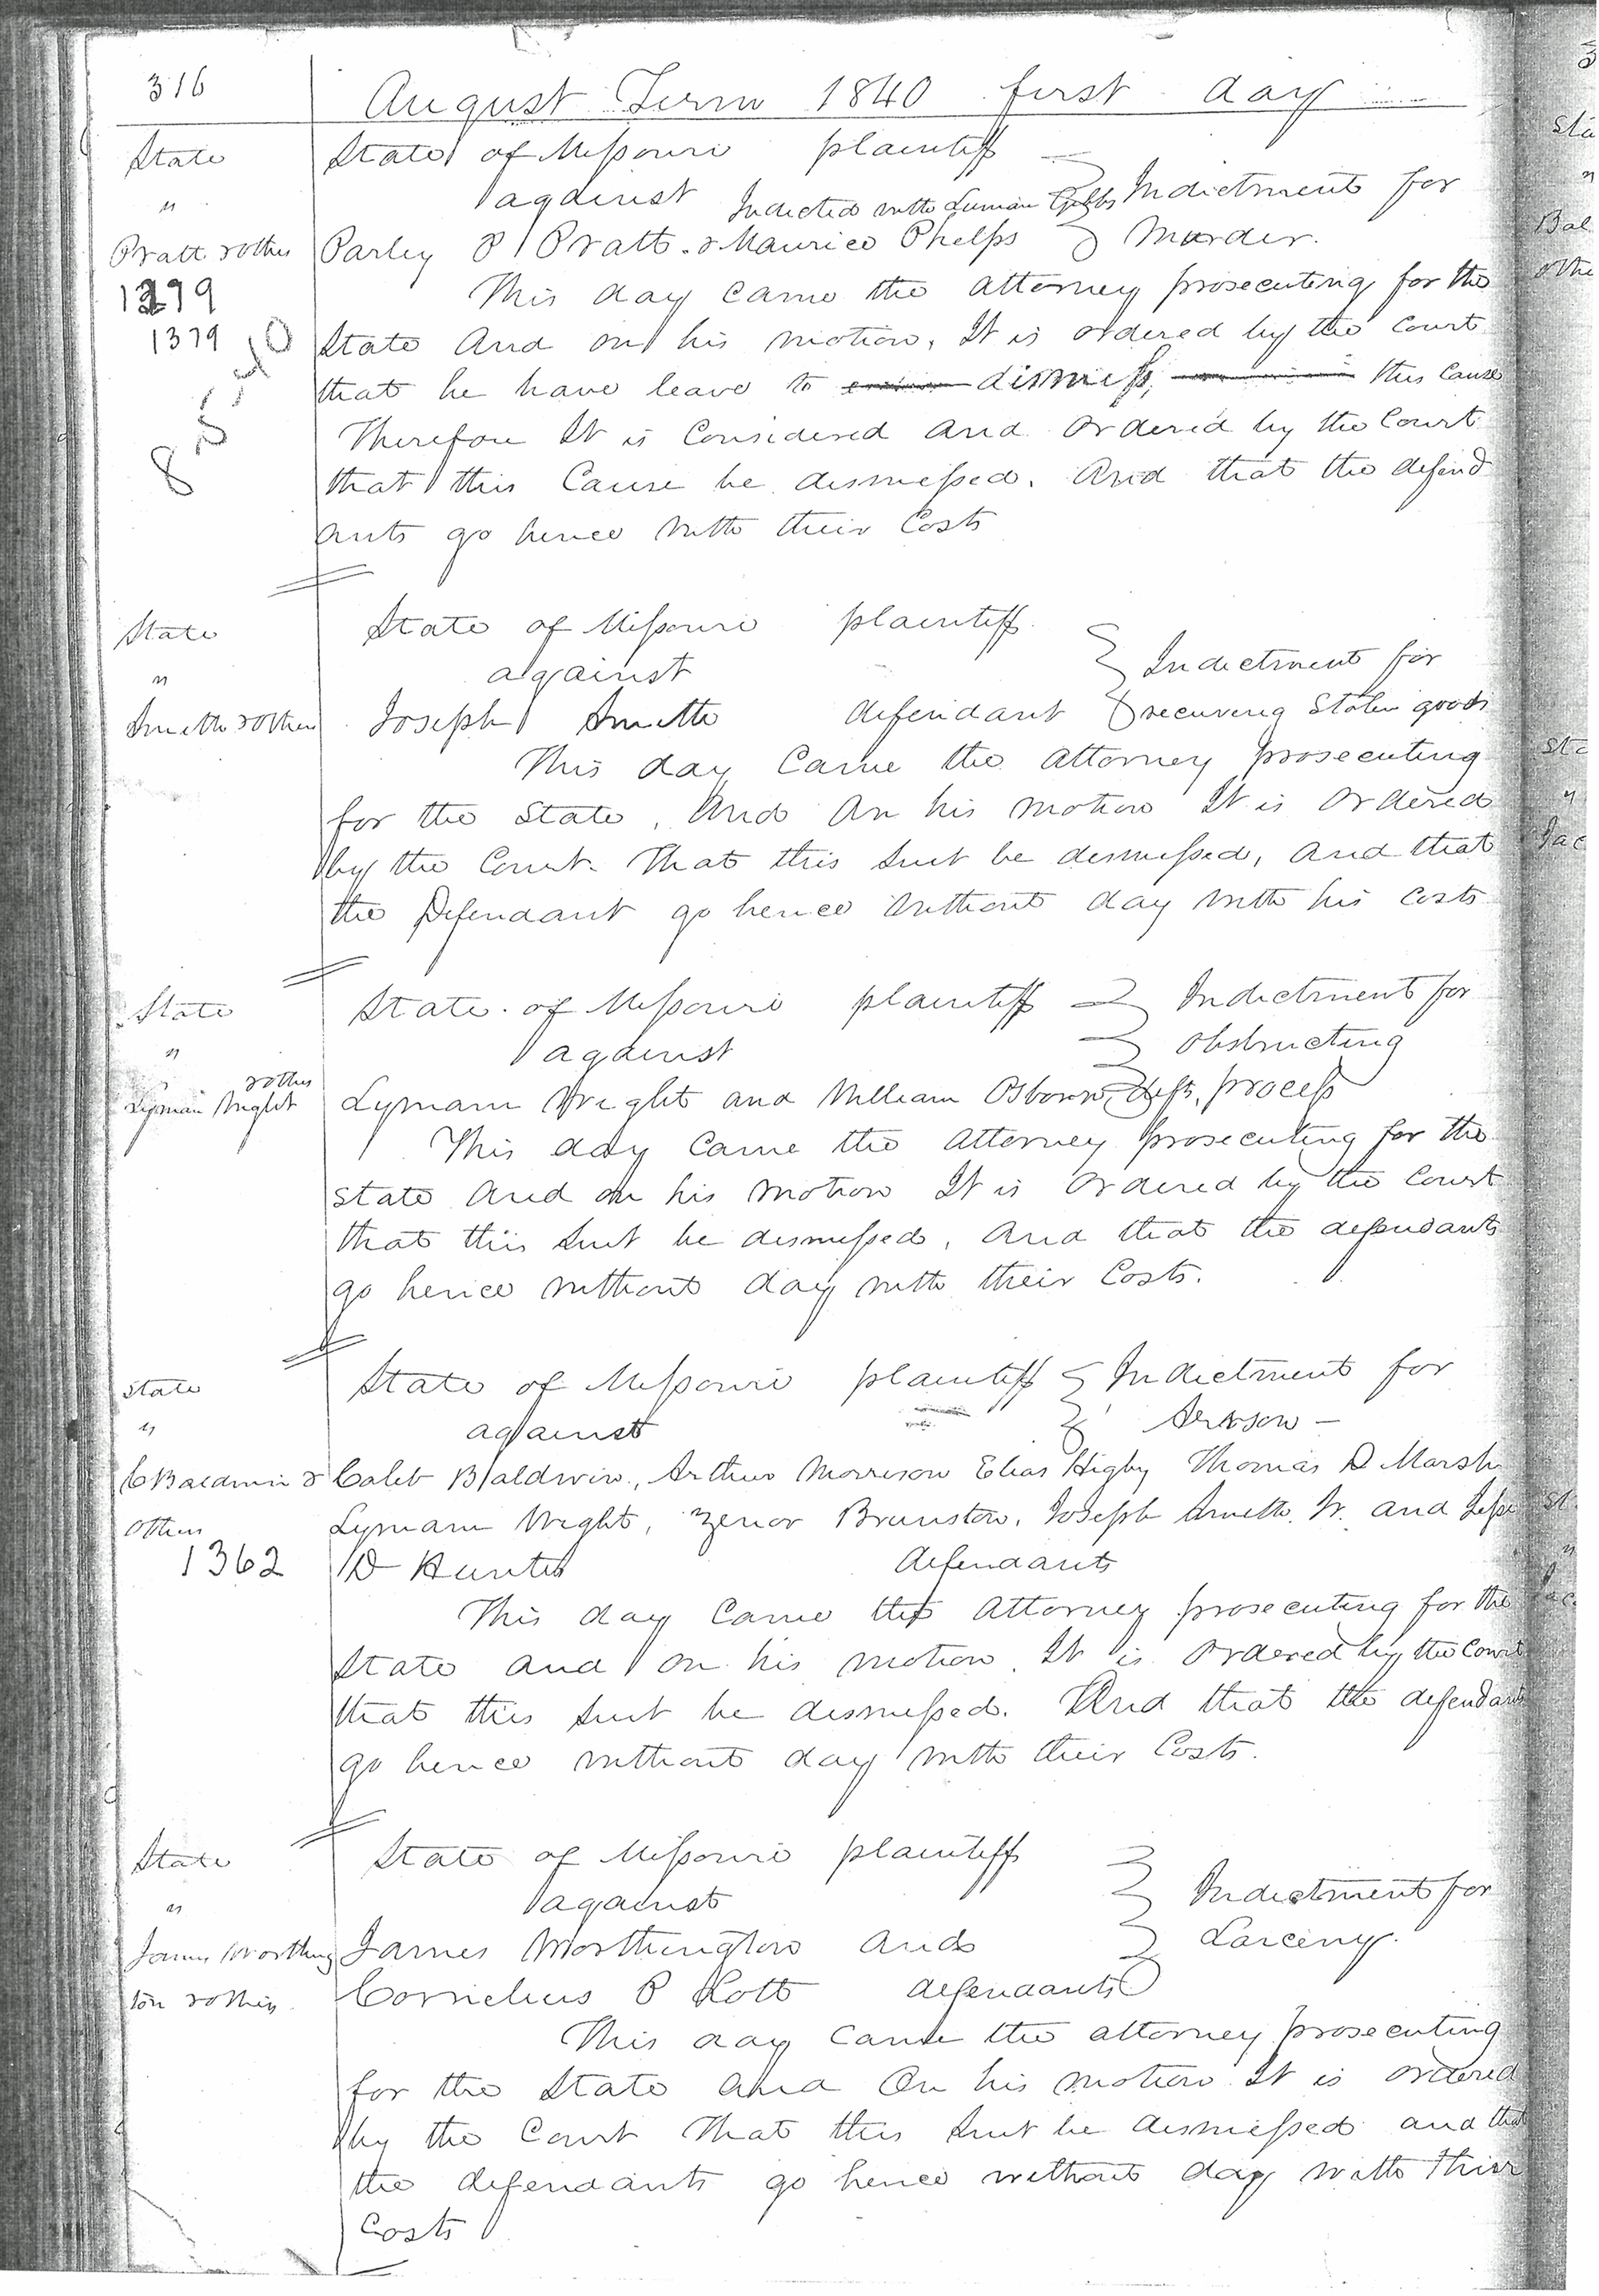 316
August Term 1840 first day
State
"
Pratt & others
1279
1379
State of Missouri plaintiff
against Indicted with Luman Gibbs Indictment for
Parley P Pratt & Maurice Phelps Murder.
This day came the attorney prosecuting for the
State And on his motion, It is ordered by the Court
that he have leave to dismiss, this Cause
Therefore It is Considered and ordered by the Court
that this Cause be dismissed. And that the defend
ants go hence with their Costs
State
"
Smith & others
State of Missouri plaintiff
against Indictment for
Joseph Smith defendant receiving Stolen goods
This day Came the attorney prosecuting
for the State, And on his motion It is ordered
by the Court. That this Suit be dismissed, and that
the Defendant go hence without day with his costs
State
"
& others
Lyman Wight
State of Missouri plaintiff Indictment for
against obstructing
Lyman Wright and William Osborn, defts, process
This day Came the attorney prosecuting for the
State and on his motion It is ordered by the Court
that this Suit be dismissed, and that the defendants
go hence without day with their Costs.
State
"
C Baldwin &
others
1362
State of Missouri plaintiff Indictment for
against Arkson -
Caleb Baldwin, Arthur Morrison Elias Higby Thomas D Marsh
Lyman Wright, Zenor Brunston, Joseph Smith Jr. and Jesse
D Hunter defendants
This day Came the attorney prosecuting for the
State and on his motion It is ordered by the Court
that this Suit be dismissed. And that the defendants
go hence without day with their Costs.
State
"
James Worthing
ton & others
State of Missouri plaintiff
against Indictment for
James Worthington and Larceny.
Cornelius P Lott defendants
This day came the attorney prosecuting
for the State and On his motion It is ordered
by the Court That this Suit be dismissed and that
the defendants go hence without day with their
Costs